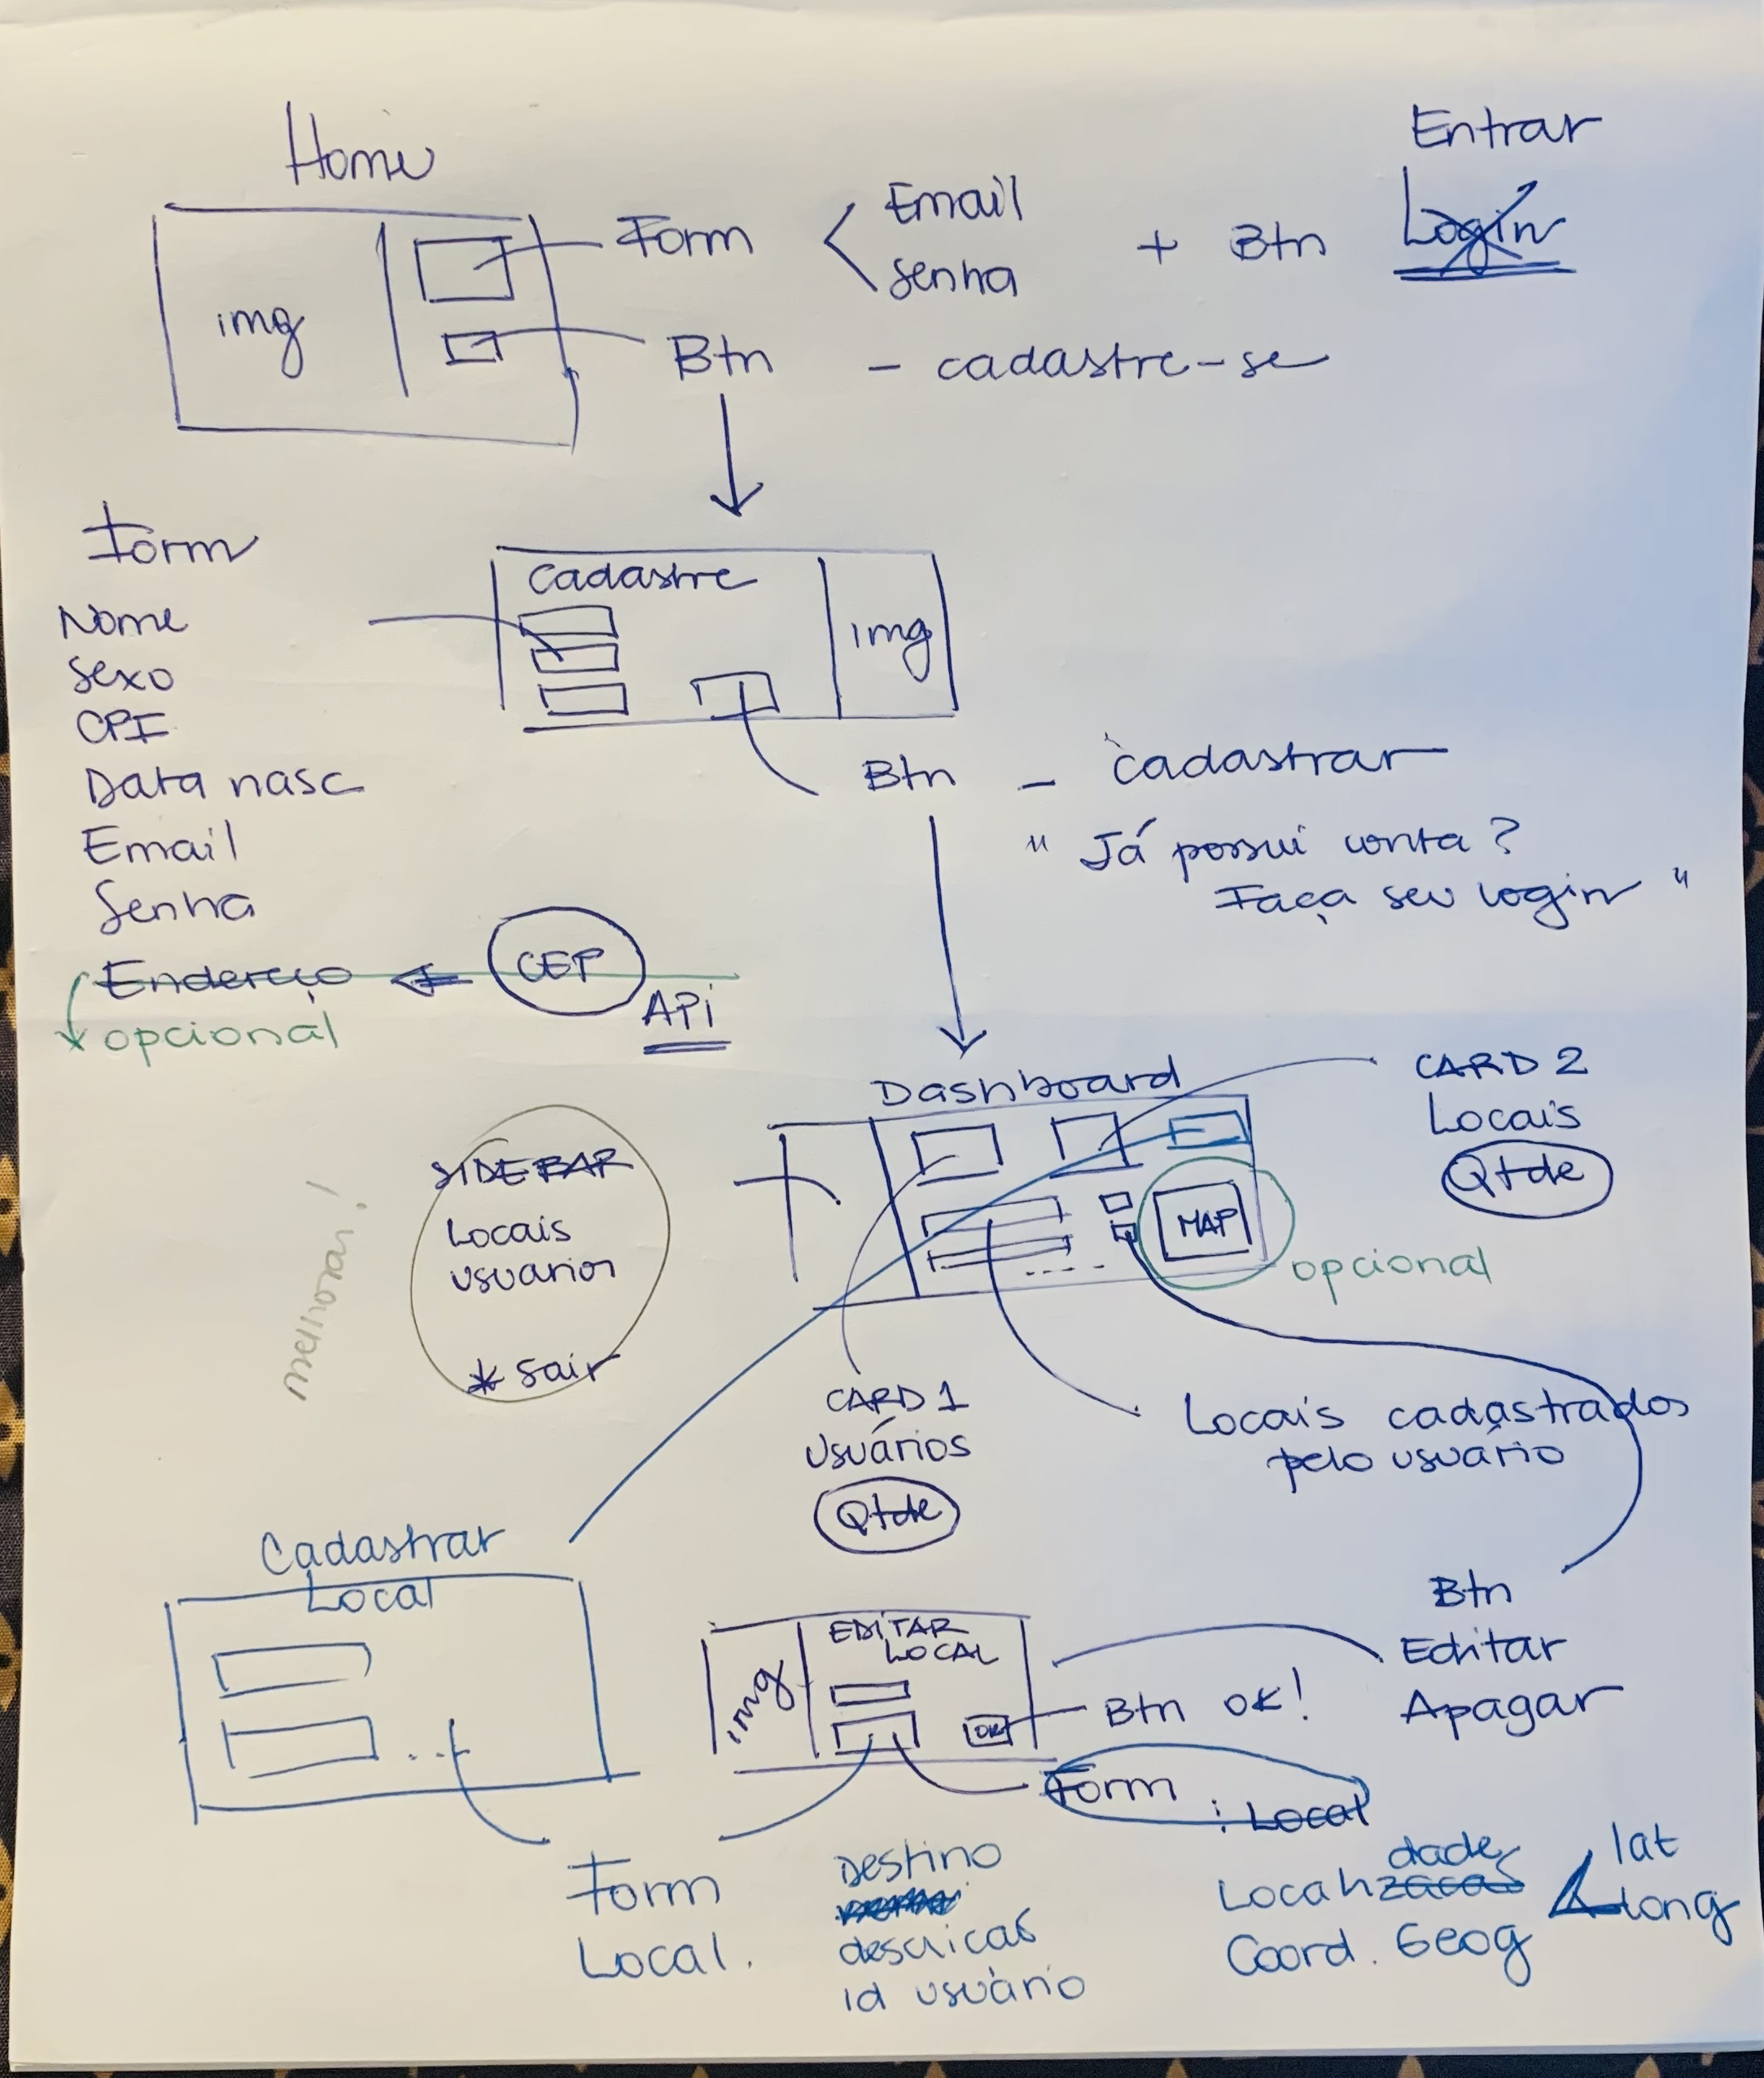 Home
Entrar
Form < Email
senha
+ Btn Login
img
Btn - cadastre-se
Form
Nome
sexo
CPF
Data nasc
Email
Senha
Endereço
opcional
CEP
API
cadastre
img
Btn - cadastrar
" Já possui conta?
Faça seu login "
Dashboard
CARD 2
Locais
Qtde
MAP
opcional
SIDEBAR
Locais
usuarios
* sair
melhorar!
CARD 1
Usuários
Qtde
Locais cadastrados
pelo usuário
Cadastrar
Local
EDITAR
LOCAL
img
OK
Btn OK!
Btn
Editar
Apagar
Form
: Local
Form
Local.
Destino
descricao
id usuário
dade
Localizacao
Coord. Geog
lat
long